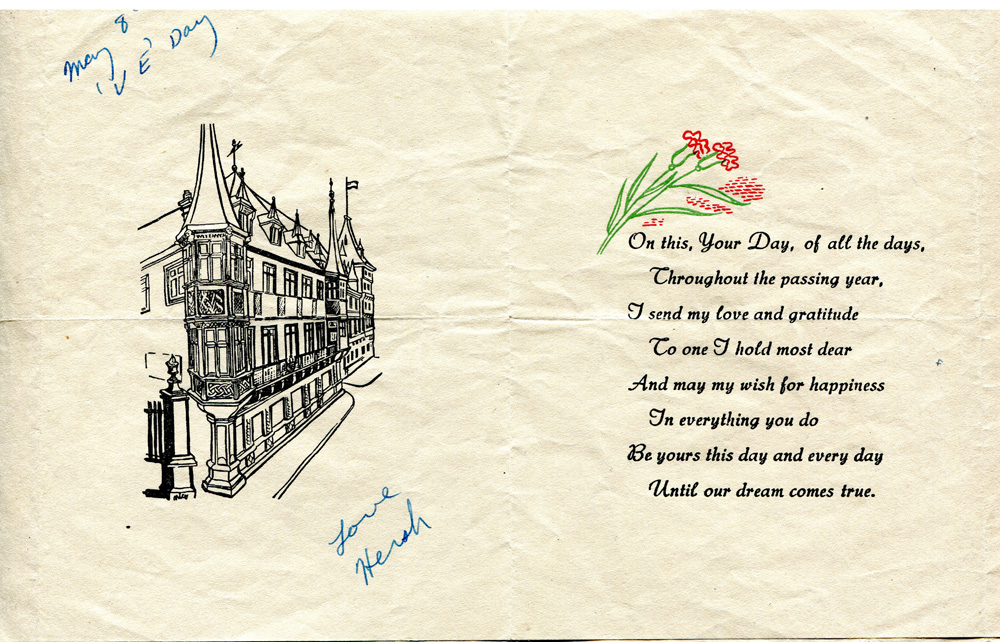 May 8
'V E' Day
Love
Hersh
On this, Your Day, of all the days,
Throughout the passing year,
I send my love and gratitude
To one I hold most dear
And may my wish for happiness
In everything you do
Be yours this day and every day
Until our dream comes true.